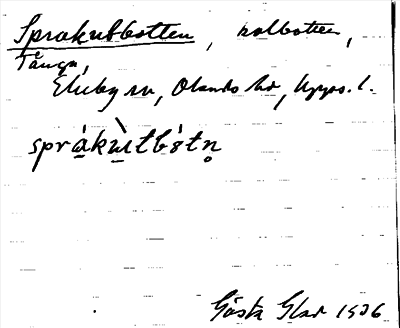 Sprakubbotten, kolbotten,
Tånga,
Ekeby sn, Olands hd, Upps. l.
språkùtbótn̥
Gösta Glad 1936